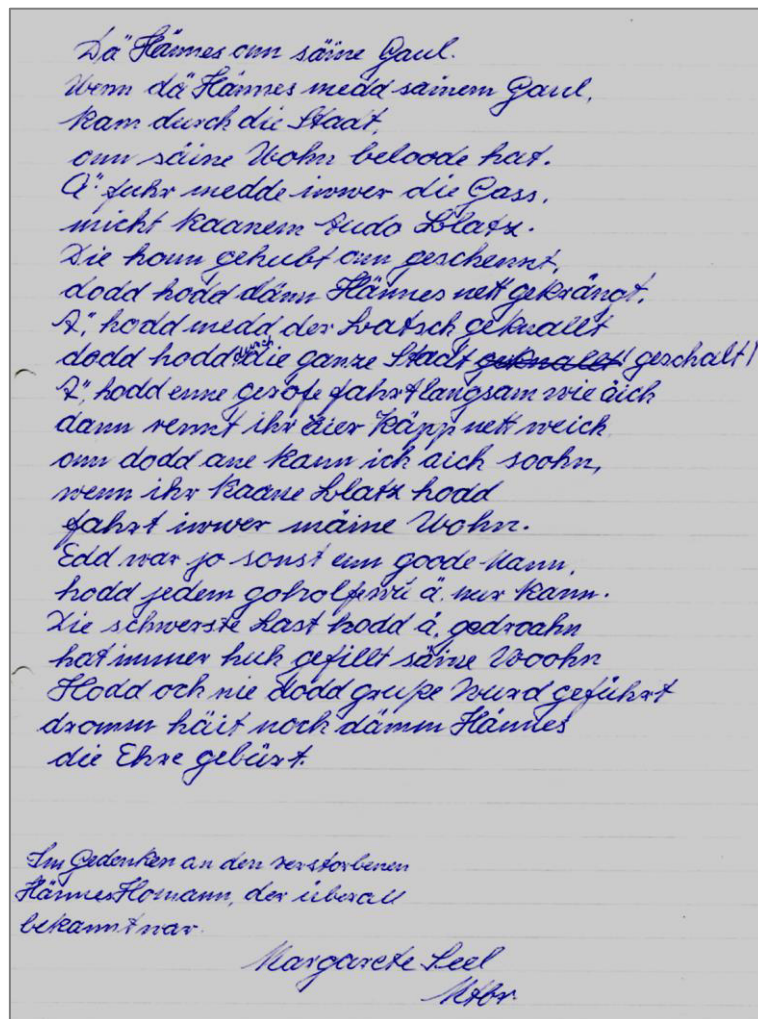 Dä Hännes onn säine Gaul.
Wenn dä Hännes medd sainem Gaul,
kam durch die Staat,
onn säine Wohn beloode hat.
Ä fuhr medde iwwer die Gass,
micht kaanem Audo Blatz.
Die honn gehubt onn geschennt,
dodd hodd dänn Hännes nett gekrängt.
Ä, hodd medd der Batsch geknallt
dodd hodd durch die ganze Stadt geknallt geschalt!
Ä, hodd enne gerofe fahrt langsam wie aich
dann rennt ihr eier Käpp nett weich
onn dodd ane kann ich aich soohn,
wenn ihr kaane Blatz hodd
fahrt iwwer mäine Wohn.
Edd war jo sonst enn goode Mann,
hodd jedem geholfe wii ä, nur kann.
Die schwerste Last hodd ä, gedroahn
hat immer huh gefillt säine Wooohn
Hodd och nie dodd gruße Wurd geführt
dromm häit noch dämm Hännes
die Ehre gebürt.
Im Gedenken an den verstorbenen
Hännes Homann, der überall
bekannt war.
Margarete Seel